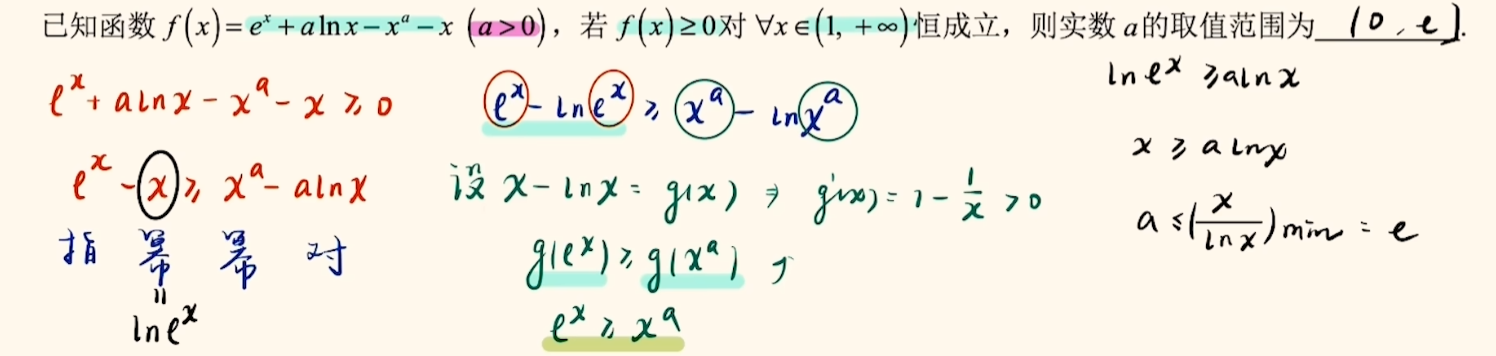 已知函数 f(x)=eˣ+alnx−xᵃ−x (a>0)，若 f(x)≥0对 ∀x∈(1, +∞)恒成立，则实数 a的取值范围为 (0, e].
eˣ+alnx−xᵃ−x≥0
eˣ−x≥xᵃ−alnx
指 幂 幂 对
=
lneˣ
eˣ−lneˣ≥xᵃ−lnxᵃ
设 x−lnx=g(x) ⇒ g'(x)=1−1/x>0
g(eˣ)≥g(xᵃ) ↗
eˣ≥xᵃ
lneˣ≥alnx
x≥alnx
a≤(x/lnx)min=e